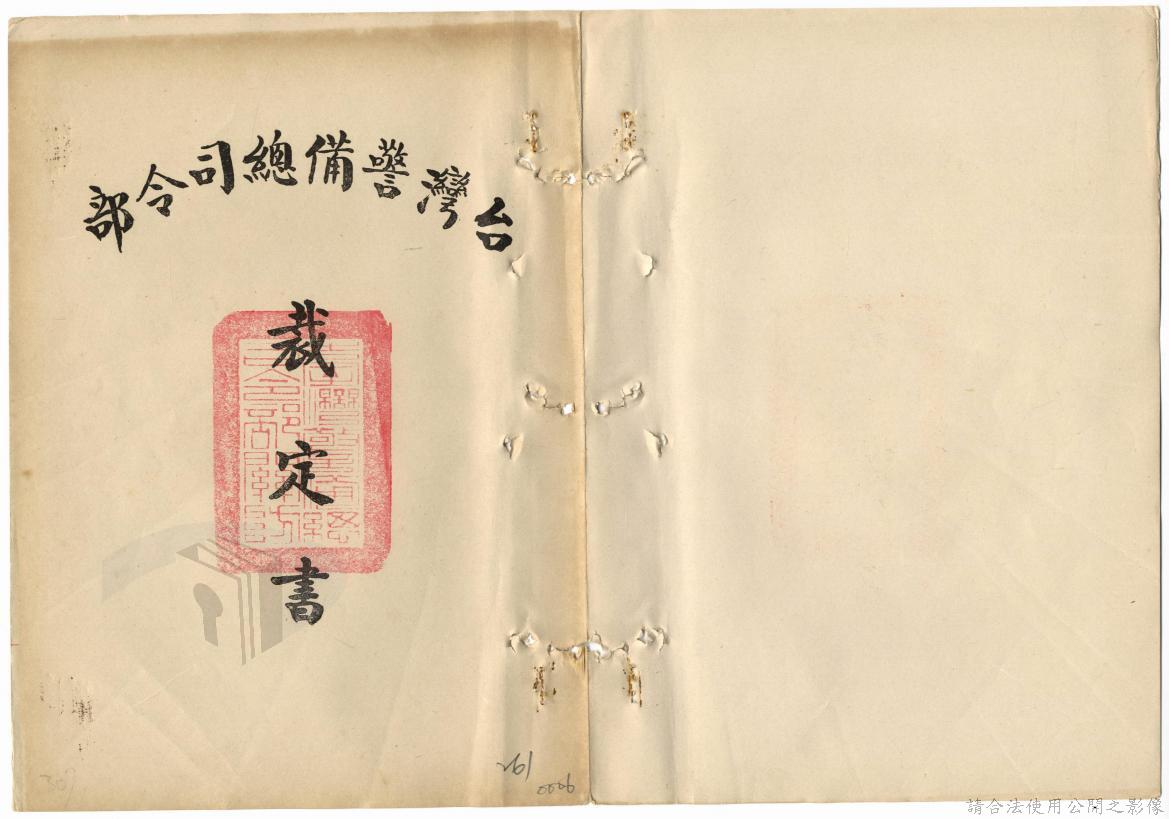 台灣警備總司令部
裁定書
192
0006
請合法使用公開之影像